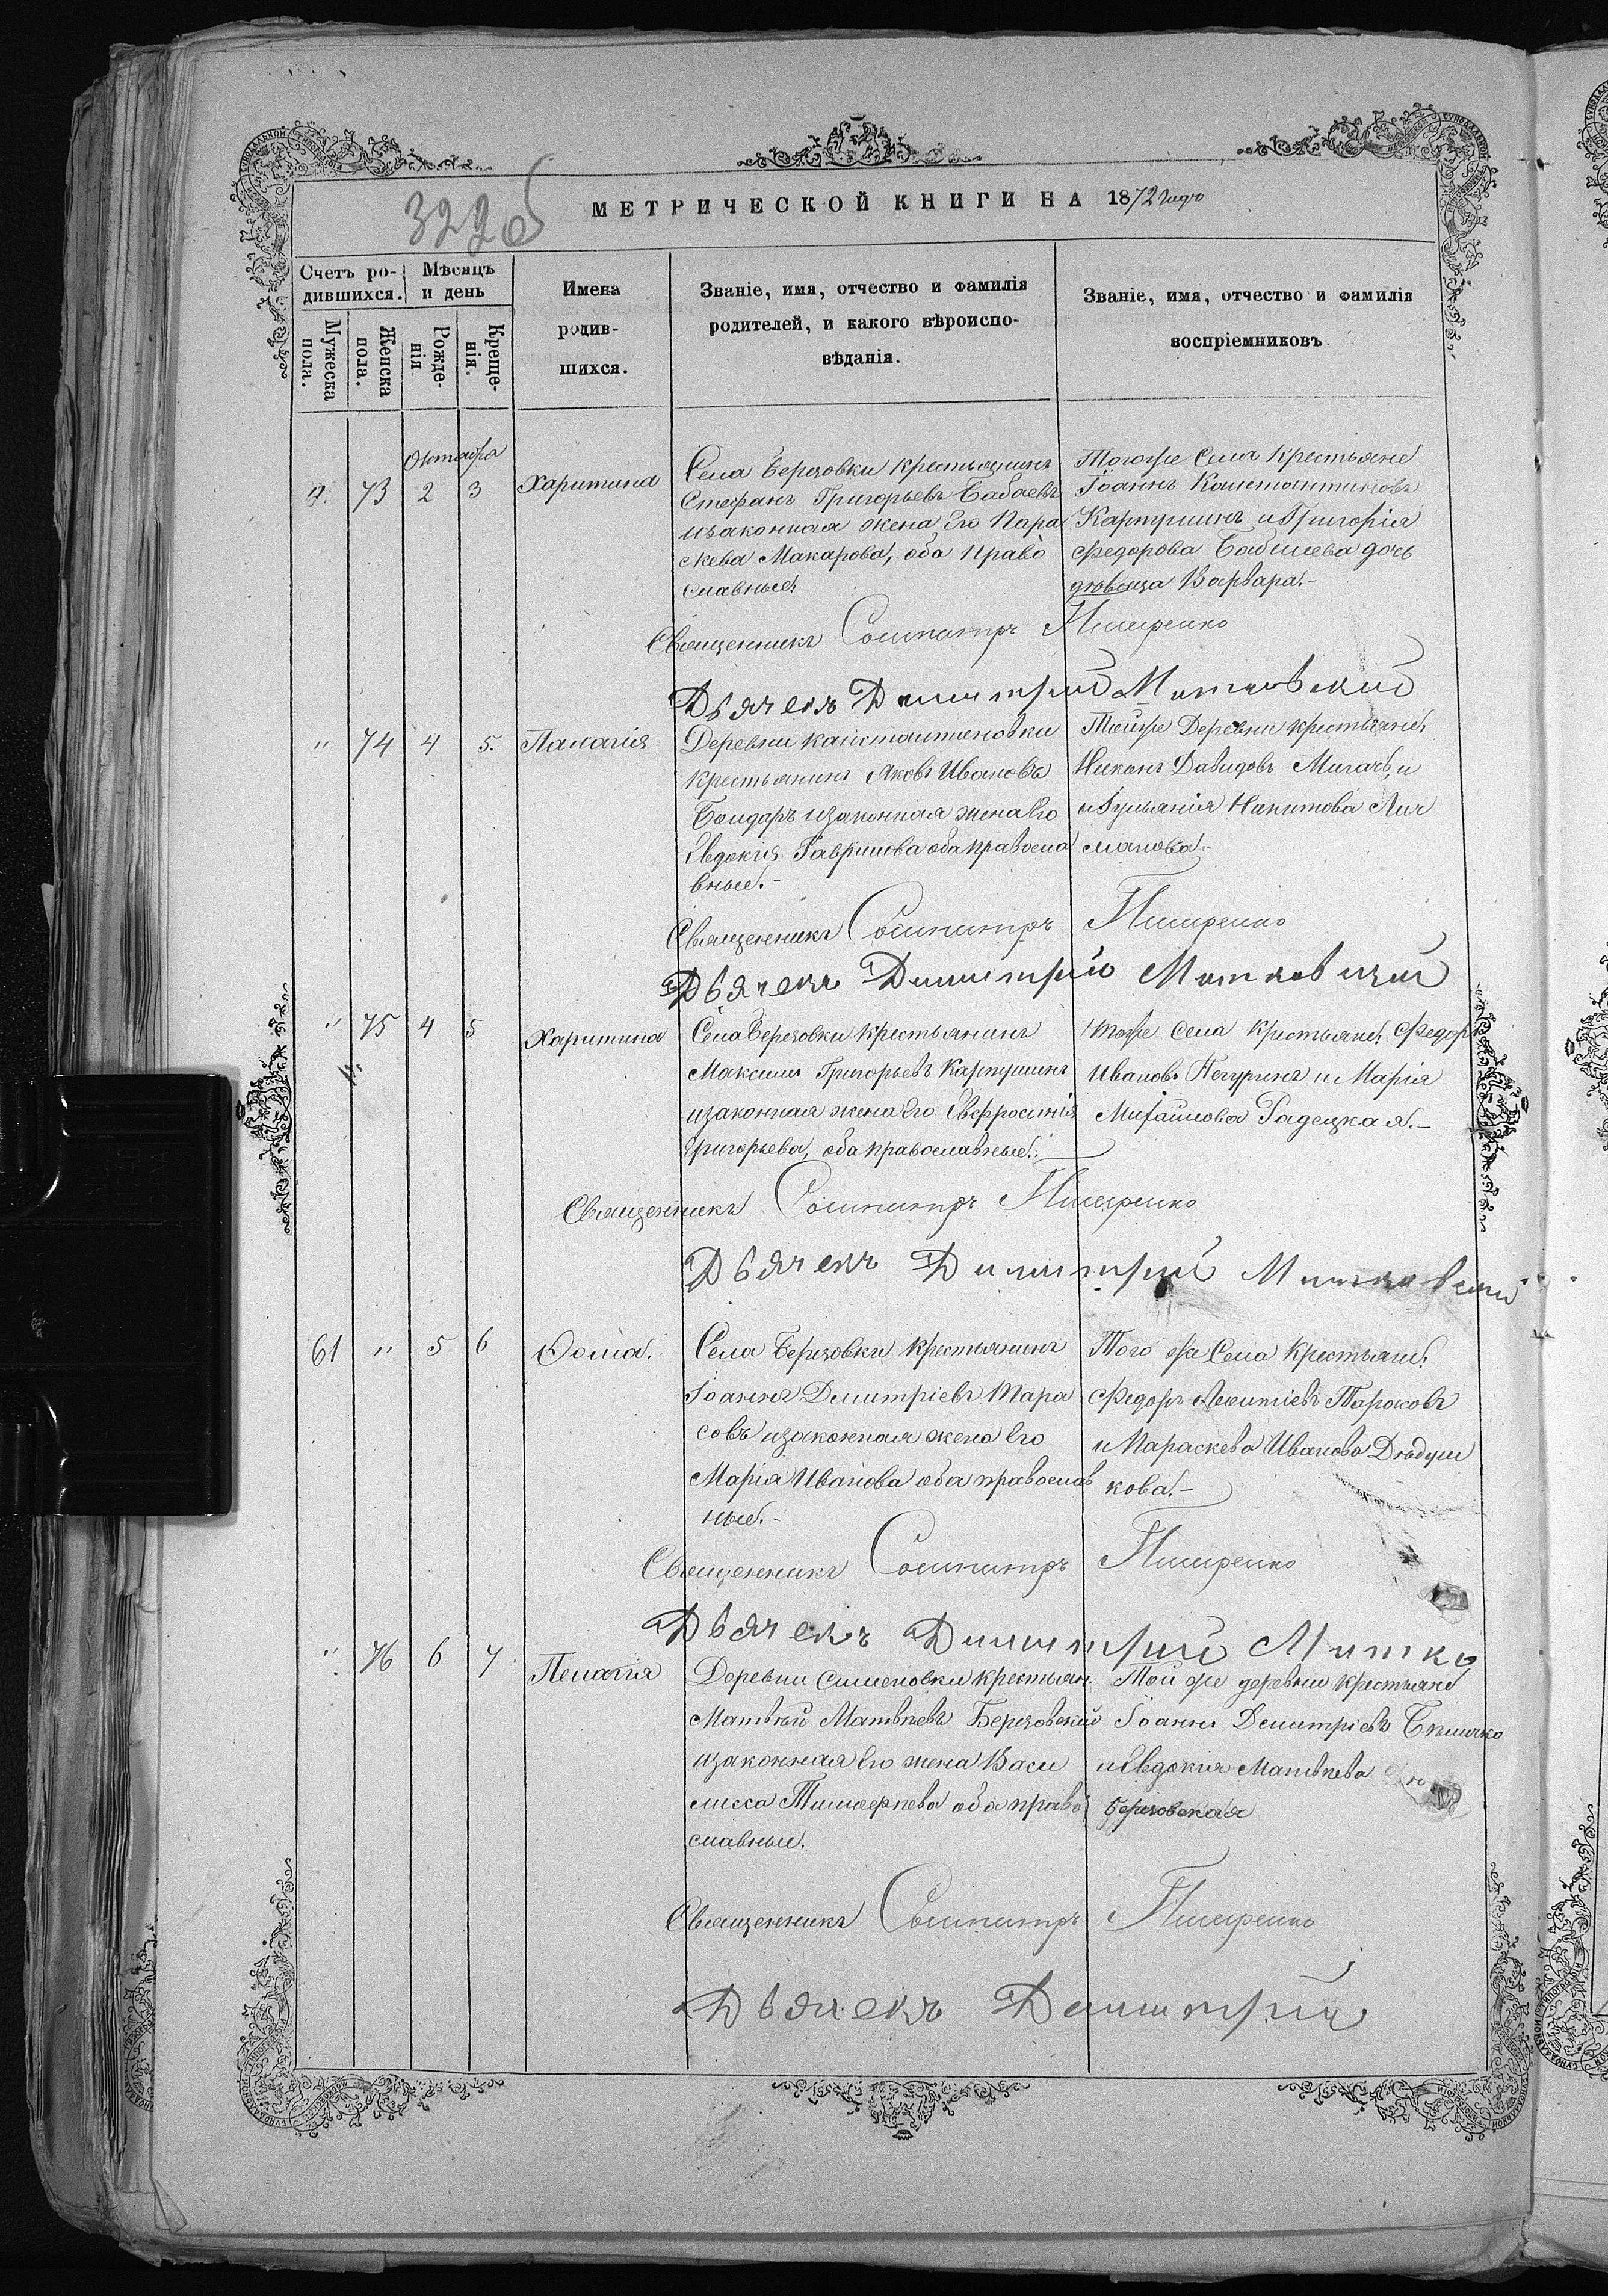 322 об
МЕТРИЧЕСКОЙ КНИГИ НА 1872 годъ
Счетъ ро-
дившихся.
Мужеска
пола.
Женска
пола.
Мѣсяцъ
и день
Рожде-
нія
Креще-
нія.
Имена
родив-
шихся.
Званіе, имя, отчество и фамилія
родителей, и какого вѣроиспо-
вѣданія.
Званіе, имя, отчество и фамилія
воспріемниковъ
Октября
73 2 3 Харитина
Села Березовки крестьянинъ
Стефанъ Григорьевъ Бабаевъ
изаконная жена Его Пара
скева Макарова, оба право
славные.
Тогоже Села Крестьяне
Іоаннъ Константиновъ
Картушинъ и Григорія
Федорова дочь
дѣвица Варвара.-
Священникъ Сосипатръ
Дьячекъ Димитрий
" 74 4 5. Палагія
Деревни Константиновки
крестьянинъ Яковъ Ивановъ
Бондарь изаконная жена Его
Евдокія Гаврилова оба правосла
вные.-
Тойже Деревни крестьяне
Никонъ Давидовъ и
и Іульянія Никитова
Священникъ Сосипатръ
Дьячекъ Димитрий
" 75 4 5 Харитина
Села Березовки крестьянинъ
Максимъ Григорьевъ Картушинъ
изаконная жена Его Евфросинія
Григорьева, оба православные.
тогже Села Крестьяне, Федоръ
Ивановъ и Марія
Михайлова Радецкая.-
Священникъ Сосипатръ
Дьячекъ Димитрий
61 " 5 6 Ѳома.
Села Березовки Крестьянинъ
Іоаннъ Димитріевъ Тара
совъ изаконная жена Его
Марія Иванова оба православ
ные.-
Того же Села Крестьяне.
Федоръ Леонтіевъ Тарасовъ
и Параскева Иванова Дѣдуш
кова.-
Священникъ Сосипатръ
Дьячекъ Димитрий
" 76 6 7 Пелагія
Деревни Семеновки крестьян.
Матвѣй Матвѣевъ Березовский
изаконная Его жена Васи
лисса Тимофѣева оба право
славные.
Той же деревни крестьяне
Іоаннъ Димитріевъ
и Евдокія Матвѣева
Березовская
Священникъ Сосипатръ
Дьячекъ Димитрий